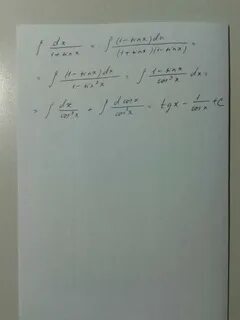 ∫ dx/(1+sinx) = ∫ (1-sinx)dx/((1+sinx)(1-sinx)) =
= ∫ (1-sinx)dx/(1-sin²x) = ∫ (1-sinx)/cos²x dx =
= ∫ dx/cos²x + ∫ dcosx/cos²x = tgx - 1/cosx + C